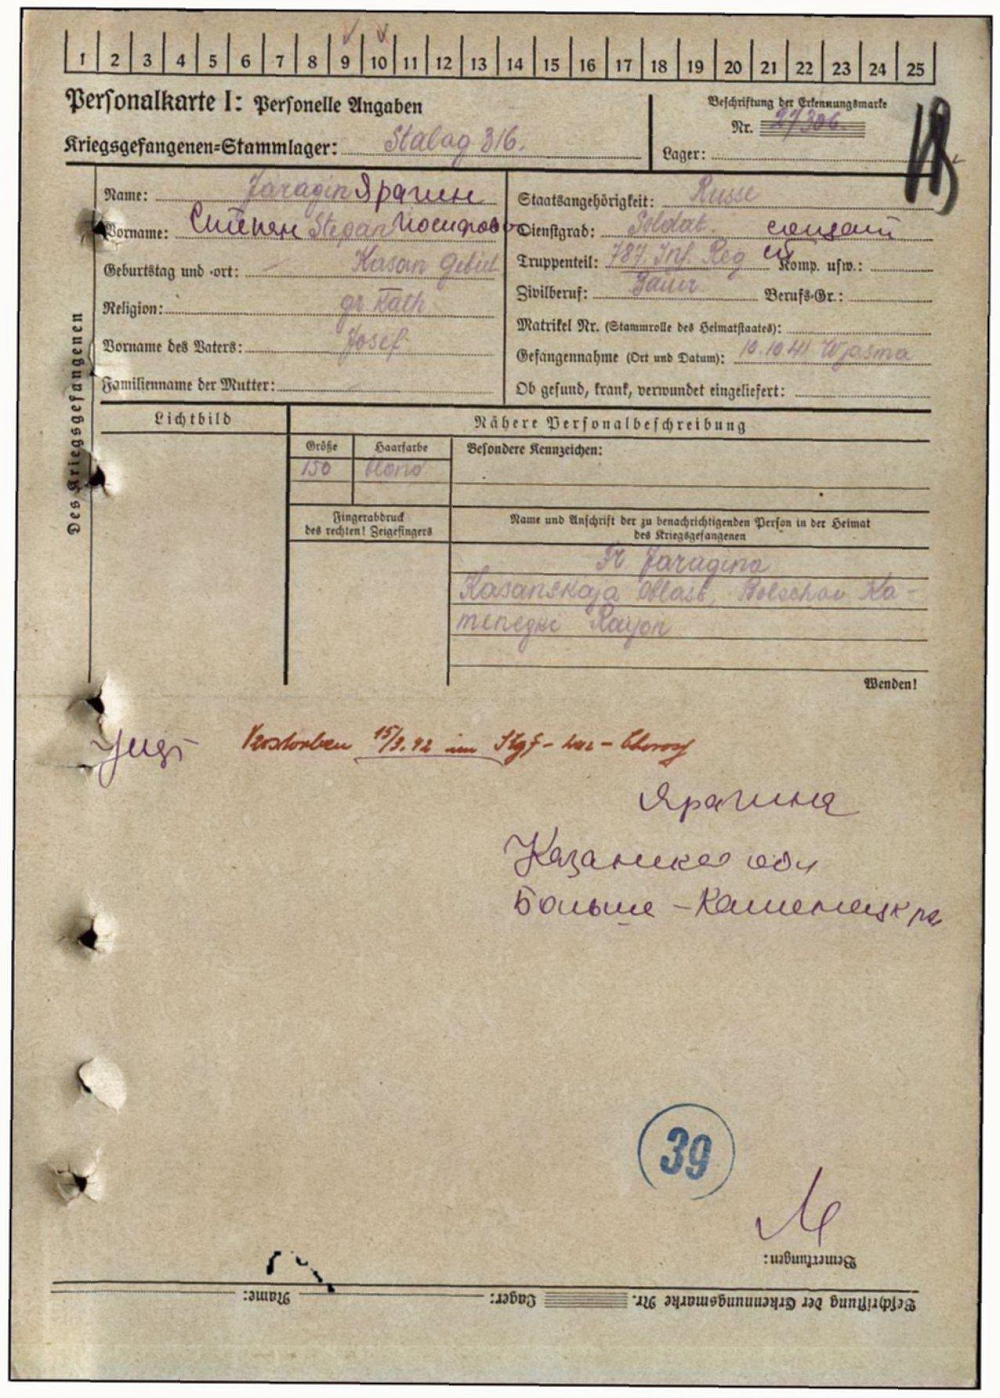 1 2 3 4 5 6 7 8 9 10 11 12 13 14 15 16 17 18 19 20 21 22 23 24 25
Personalkarte I: Personelle Angaben
Kriegsgefangenen=Stammlager: Stalag 316.
Beschriftung der Erkennungsmarke
Nr. 27306.
Lager:
Des Kriegsgefangenen
Name: Jaragin Ярагин
Vorname: Степан Stepan
Geburtstag und =ort: Kasan Gebiet
Religion: gr. Kath.
Vorname des Vaters: Josef
Familienname der Mutter:
Staatsangehörigkeit: Russe
Dienstgrad: Soldat
Truppenteil: 787. Inf. Reg Komp. usw.:
Zivilberuf: Berufs=Gr.:
Matrikel Nr. (Stammrolle des Heimatstaates):
Gefangennahme (Ort und Datum): 10.10.41 Wjasma
Ob gesund, krank, verwundet eingeliefert:
Lichtbild
Nähere Personalbeschreibung
Größe Haarfarbe Besondere Kennzeichen:
150 blond
Fingerabdruck
des rechten! Zeigefingers
Name und Anschrift der zu benachrichtigenden Person in der Heimat
des Kriegsgefangenen
Fr. Jaragina
Kasanskaja Oblast, Bolschov Ka-
menezki Rayon
Wenden!
Verstorben 15/2.42 im
Ярагина
Казанская обл
Больше-Каменецк
39
Bemerkungen:
Beschriftung der Erkennungsmarke Nr. Lager: Name: